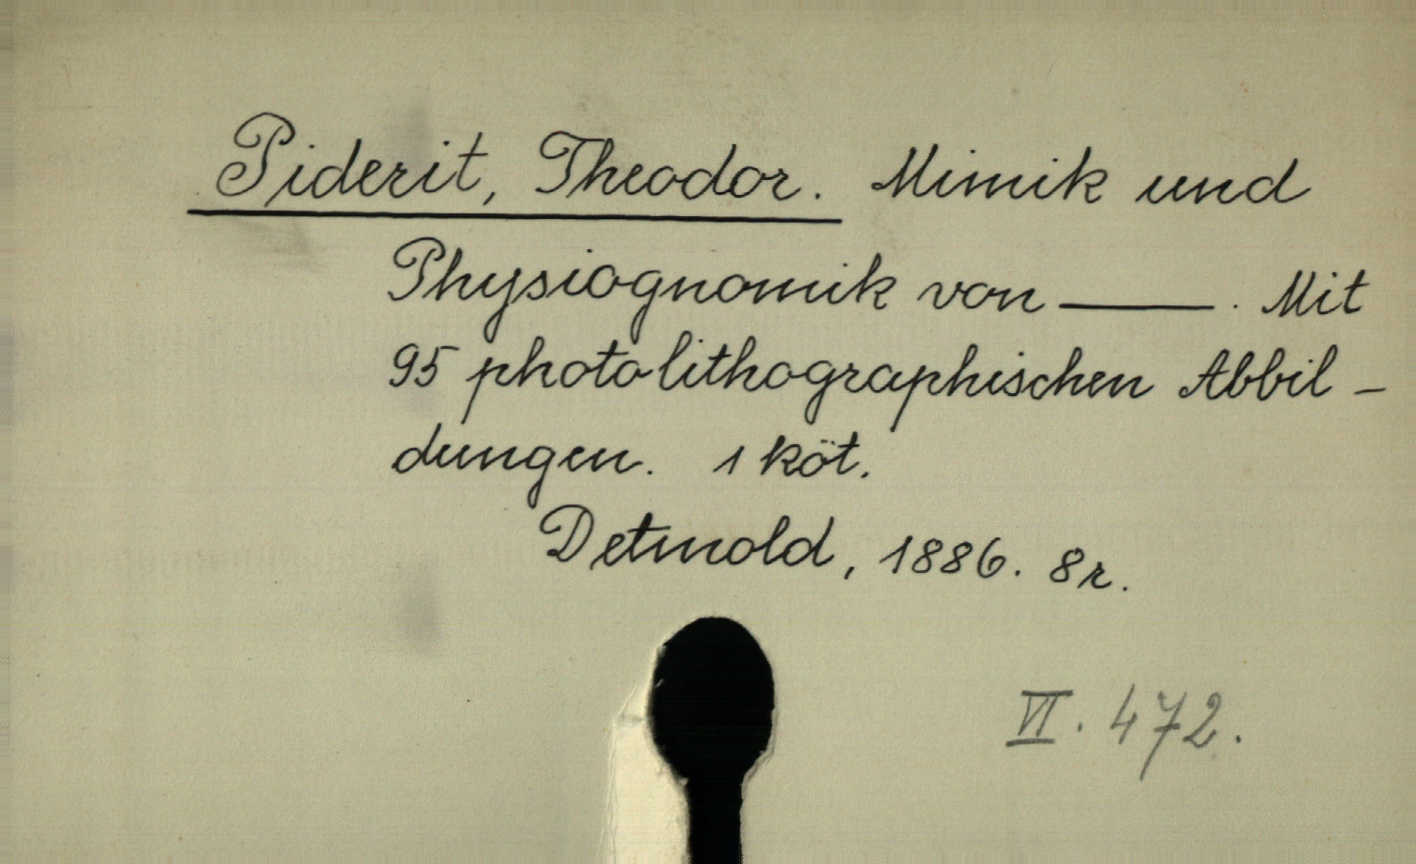 Piderit, Theodor. Mimik und
Physiognomik von ——. Mit
95 photolithographischen Abbil-
dungen. 1 köt.
Detmold, 1886. 8r.
VI. 472.